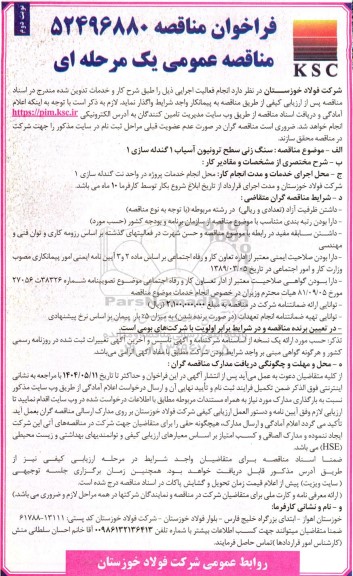 نوبت دوم
فراخوان مناقصه ۵۲۴۹۶۸۸۰
مناقصه عمومی یک مرحله ای
KSC
شرکت فولاد خوزستان در نظر دارد انجام فعالیت اجرایی ذیل را طبق شرح کار و خدمات تدوین شده مندرج در اسناد
مناقصه پس از ارزیابی کیفی از طریق مناقصه به پیمانکار واجد شرایط واگذار نماید. لازم به ذکر است با توجه به اینکه اعلام
آمادگی و دریافت اسناد مناقصه از طریق وب سایت مدیریت تامین کنندگان به آدرس الکترونیکی https://pim.ksc.ir
انجام خواهد شد. ضروری است مناقصه گران در صورت عدم عضویت قبلی مراحل ثبت نام در سایت مذکور را جهت شرکت
در مناقصه محقق سازند.
الف - موضوع مناقصه : سنگ زنی سطح ترونیون آسیاب ۱ گندله سازی ۱
ب - شرح مختصری از مشخصات و مقادیر کار :
ج - محل اجرای خدمات و مدت انجام کار: محل انجام خدمات پروژه در واحد نت گندله سازی ۱
شرکت فولاد خوزستان و مدت اجرای قرارداد از تاریخ ابلاغ شروع بکار توسط کارفرما ۱۰ ماه می باشد.
د - شرایط مناقصه گران متقاضی :
- داشتن ظرفیت آزاد (تعدادی و ریالی) در رشته مربوطه (با توجه به نوع مناقصه)
- دارا بودن رتبه بندی متناسب با موضوع مناقصه از سازمان برنامه و بودجه کشور (حسب مورد)
- داشتن سابقه مفید در رابطه با موضوع مناقصه و حسن شهرت در فعالیتهای گذشته بر اساس رزومه کاری و توان فنی و
مهندسی
- دارا بودن صلاحیت ایمنی معتبر از اداره تعاون کار و رفاه اجتماعی بر اساس ماده ۲ و ۳ آیین نامه ایمنی امور پیمانکاری مصوب
وزارت کار و امور اجتماعی در تاریخ ۱۳۸۹/۰۳/۰۵
- دارا بودن گواهی صلاحیت معتبر از اداره تعاون کار و رفاه اجتماعی موضوع تصویبنامه شماره ۳۸۳۲۶ت ۲۷۰۵۶
مورخ ۸۱/۰۹/۰۵ هیات محترم وزیران در خصوص انجام خدمات موضوع مناقصه
- توانایی ارائه ضمانتنامه شرکت در مناقصه به مبلغ ریال
- توانایی تهیه ضمانتنامه انجام تعهدات (در صورت برنده شدن) به میزان ۵٪ بار پیمان بر اساس نرخ پیشنهادی
- در تعیین برنده مناقصه و در شرایط برابر اولویت با شرکت‌های بومی است.
تذکر: حسب مورد ارائه یک نسخه از اساسنامه شرکتنامه و آگهی تاسیس و آخرین آگهی تغییرات ثبت شده در روزنامه رسمی
کشور و هرگونه گواهی مبنی بر واجد شرایط بودن شرکت مطابق با مفاد آگهی الزامی می‌باشد.
ه - محل و مهلت و چگونگی دریافت مدارک مناقصه گران :
از کلیه متقاضیان دعوت به عمل می‌آید پس از انتشار آگهی در این فراخوان و حداکثر تا تاریخ ۱۴۰۴/۰۵/۱۱ با مراجعه به نشانی
اینترنتی فوق الذکر ضمن تکمیل فرایند ثبت نام و تأیید نهایی آن و ارسال درخواست اعلام آمادگی از طریق وب سایت مذکور
نسبت به بارگذاری مدارک مورد نیاز به همراه مستندات مربوطه مطابق با اطلاعات درخواست شده در وب سایت اقدام نمایید تا
ارزیابی لازم وفق آیین نامه و دستور العمل ارزیابی کیفی شرکت فولاد خوزستان بر روی مدارک ارسالی مناقصه گران بعمل آید.
تأکید می گردد اعلام آمادگی و ارسال مدارک، هیچگونه حقی را برای متقاضیان جهت شرکت در مناقصه‌های آتی این شرکت
ایجاد ننموده و مدارک الصاقی و کسب امتیاز بر اساس معیارهای ارزیابی کیفی و توانمندیهای بهداشتی و زیست محیطی
(HSE) می باشد
ضمنا اسناد مناقصه برای متقاضیان واجد شرایط در مرحله ارزیابی کیفی نیز از
طریق آدرس مذکور قابل دریافت خواهد بود. همچنین زمان برگزاری جلسه توجیهی
(سایت ویزیت) پیش از اعلام قیمت زمان تحویل و گشایش پاکات در اسناد مناقصه درج شده است.
(ارائه معرفی نامه و کارت ملی برای متقاضیان شرکت در مناقصه و نمایندگان شرکتها در همه مراحل لازم و ضروری می باشد)
و - نام و نشانی کارفرما:
خوزستان اهواز - ابتدای بزرگراه خلیج فارس - بلوار فولاد خوزستان - شرکت فولاد خوزستان کد پستی: ۱۳۱۱۱-۶۱۷۸۸
ضمناً متقاضیان میتوانند جهت کسب اطلاعات بیشتر با شماره ۰۰۹۸۶۱۳۲۱۳۶۴۱۳ تلفن نموده با آقا خانم احسان سلطانی منش
(کارشناس امور قراردادها) تماس حاصل فرمایند.
روابط عمومی شرکت فولاد خوزستان